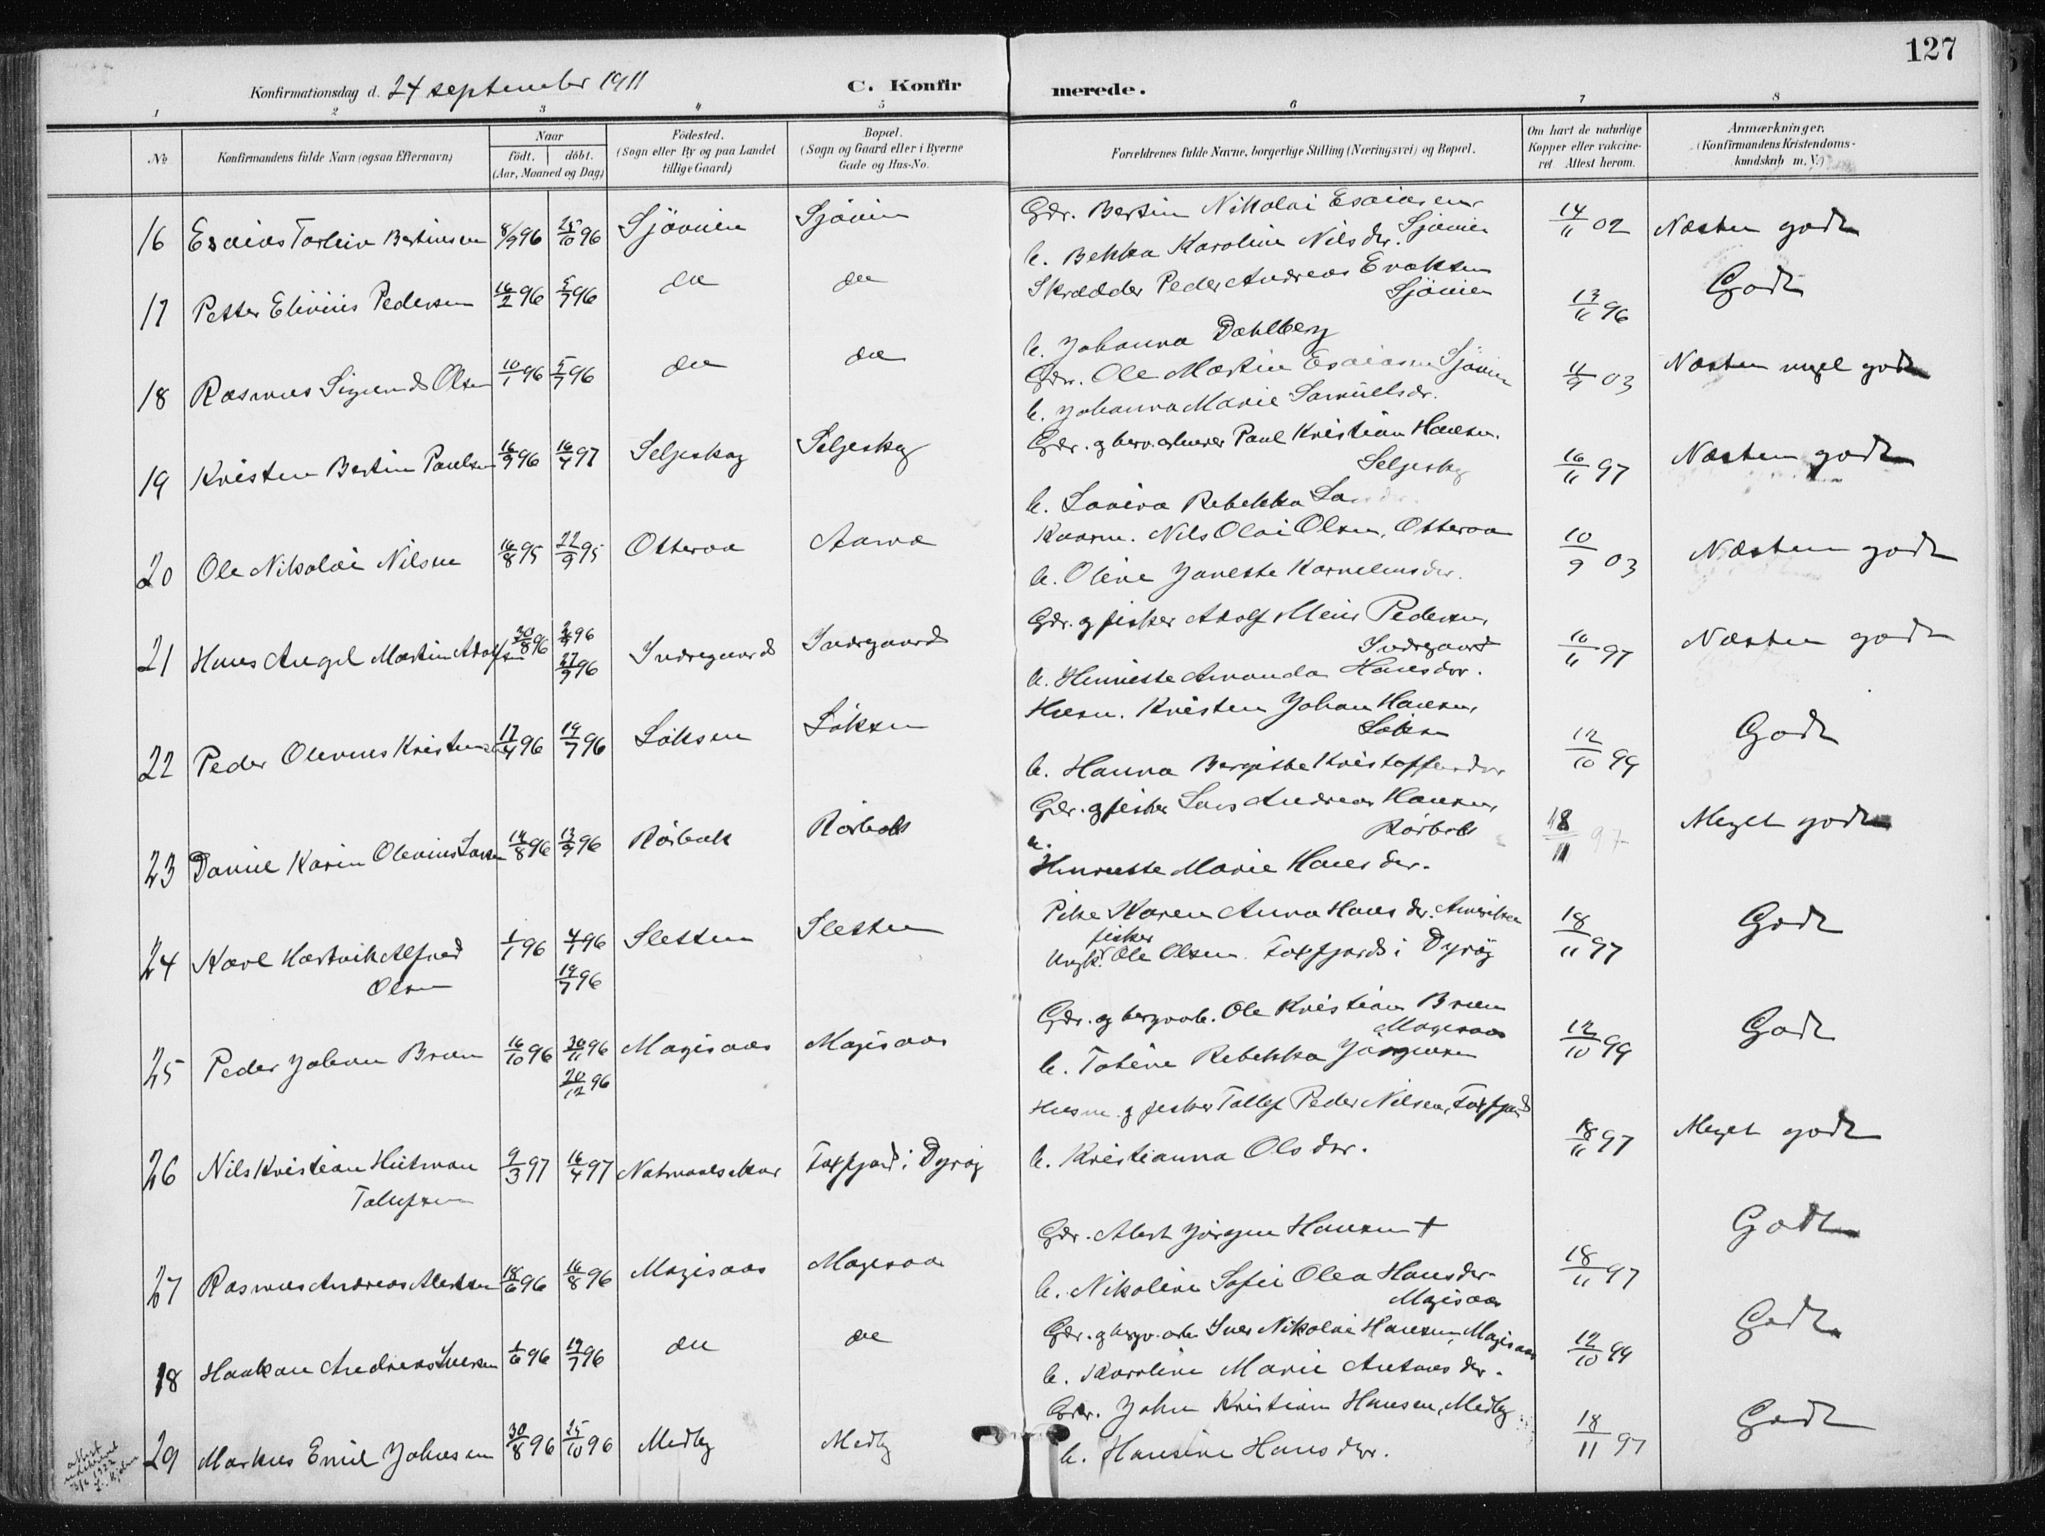 127
Konfirmationsdag d. 24 september 1911
C. Konfirmerede.
1 2 3 4 5 6 7 8
No
Konfirmandens fulde Navn (ogsaa Efternavn)
Naar
født. døbt.
(Aar, Maaned og Dag)
Fødested.
(Sogn eller By og paa Landet
tillige Gaard)
Bopæl.
(Sogn og Gaard eller i Byerne
Gade og Hus-No.
Forældrenes fulde Navne, borgerlige Stilling (Næringsvei) og Bopæl.
Om havt de naturlige
Kopper eller vakcine-
ret Attest herom.
Anmærkninger.
(Konfirmandens Kristendoms-
kundskab m. V.)
16 Esaias Torleiv Bertinsen 8/9 96 25/10 96 Sjövein Sjövein Gdr. Bertin Nikolai Esaiasen, Sjövein 14/11 02 Næsten godt
h. Bekka Karoline Nilsdr.
17 Petter Elivius Pedersen 16/2 96 5/7 96 do do Skrædder Peder Andreas Enoksen Sjövein 13/11 96 Godt
h. Johanna Dahlberg
18 Rasmus Sigurd Olsen 10/1 96 5/7 96 do do Gdr. Ole Martin Esaiasen Sjövein 11/9 03 Næsten meget godt
h. Johanna Marie Samuelsdr.
19 Kristen Bertin Paulsen 16/9 96 16/4 97 Seljeskog Seljeskog Gdr. og berv. arbeider Paul Kristian Hansen. Seljeskog 16/11 97 Næsten godt
h. Lovise Rebekka
20 Ole Nikolai Nilsen 16/8 95 22/9 95 Otteraa Aarnæ Kaarm. Nils Olai Olsen, Otteraa 10/9 03 Næsten godt
h. Oline Janette Kornelius dr.
21 Hans Angel Martin Adolfsen 30/8 96 27/9 96 Indregaard Indregaard Gdr. og fisker Adolf Meier Pedersen, Indregaard 16/11 97 Næsten godt
h. Henriette Amanda Hansdr.
22 Peder Olevius Kristensen 17/4 96 19/7 96 Løksen Løksen Husm. Kristen Johan Hansen, Løksen 12/10 99 Godt
h. Hanna Bergitte Kristoffersdr
23 Daniel Karin Olevius Larsen 14/8 96 13/9 96 Rørbak Rørbak Gdr. og fisker Lars Andreas Hansen, Rørbak 18/11 97 Meget godt
h. Henriette Marie Hansdr.
24 Karl Hartvik Alfred 1/1 96 4/1 96 Sletten Sletten Pike Karen Anna Hansdr. Amerika 18/11 97 Godt
Olsen 19/7 96 Ungk. fisker Ole Olsen. Foxfjord i Dyrøy
25 Peder Johan Bruun 16/10 96 30/11 96 Magisaas Magisaas Gdr. og bergv.arb. Ole Kristian Bruun Magisaas 12/10 99 Godt
20/12 96 h. Tobine Rebekka Jørgensen
26 Nils Kristian Hitman 9/3 97 16/4 97 Natmaalsskar Foxfjord i Dyrøy Husm. og fisker Tollef Peder Nilsen, Foxfjord 18/11 97 Meget godt
Tollefsen h. Kristianna Olsdr.
27 Rasmus Andreas Albertsen 18/6 96 16/8 96 Magisaas Magisaa Gdr. Albert Jørgen Hansen † 18/11 97 Godt
h. Nikoline Sofie Olea Hansdr. Magisaas
18 Haakon Andreas Iversen 1/6 96 19/7 96 do do Gdr. og bergv. arb. Iver Nikolai Hansen, Magisaas 12/10 99 Godt
h. Karoline Marie Antonsdr.
29 Markus Emil Johnsen 30/8 96 25/10 96 Medby Medby Gdr. John Kristian Hansen, Medby 18/11 97 Godt
h. Hansine Hansdr.
attest